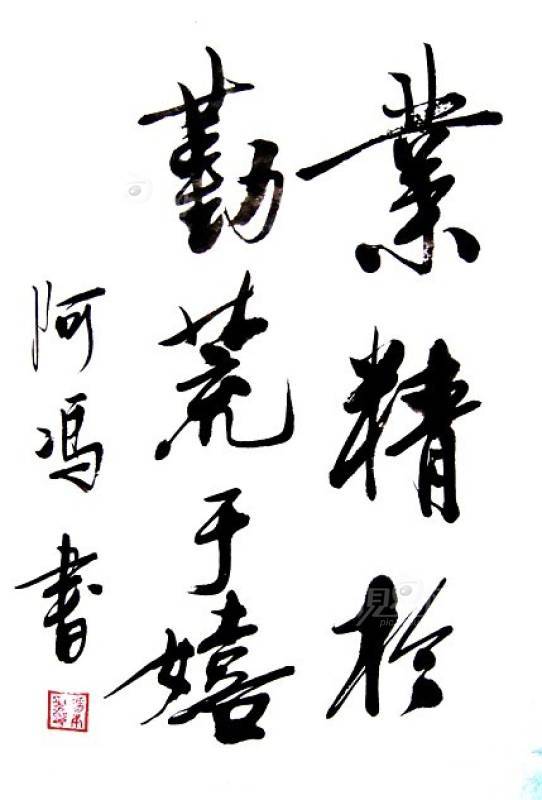 業精於
勤荒于嬉
阿冯書